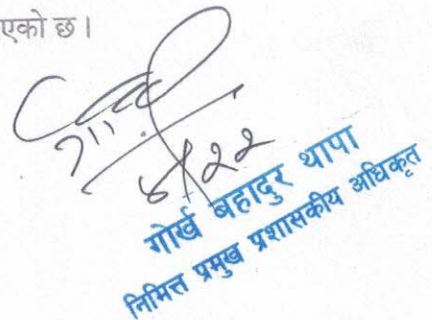 एको छ।
४/२२
गोर्ख बहादुर थापा
निमित्त प्रमुख प्रशासकीय अधिकृत